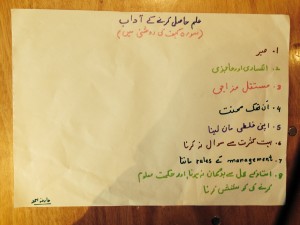 علم حاصل کرنے کے آداب
(سورۃ کہف کی روشنی میں)
1. صبر
2. انکساری اور عاجزی
3. مستقل مزاجی
4. ان تھک محنت
5. اپنی غلطی مان لینا
6. بہت کثرت سے سوال نہ کرنا
7. management کے rules ماننا
8. استاد کے عمل سے بدگمان نہ ہونا، اور حکمت معلوم
کرنے کی کوشش کرنا